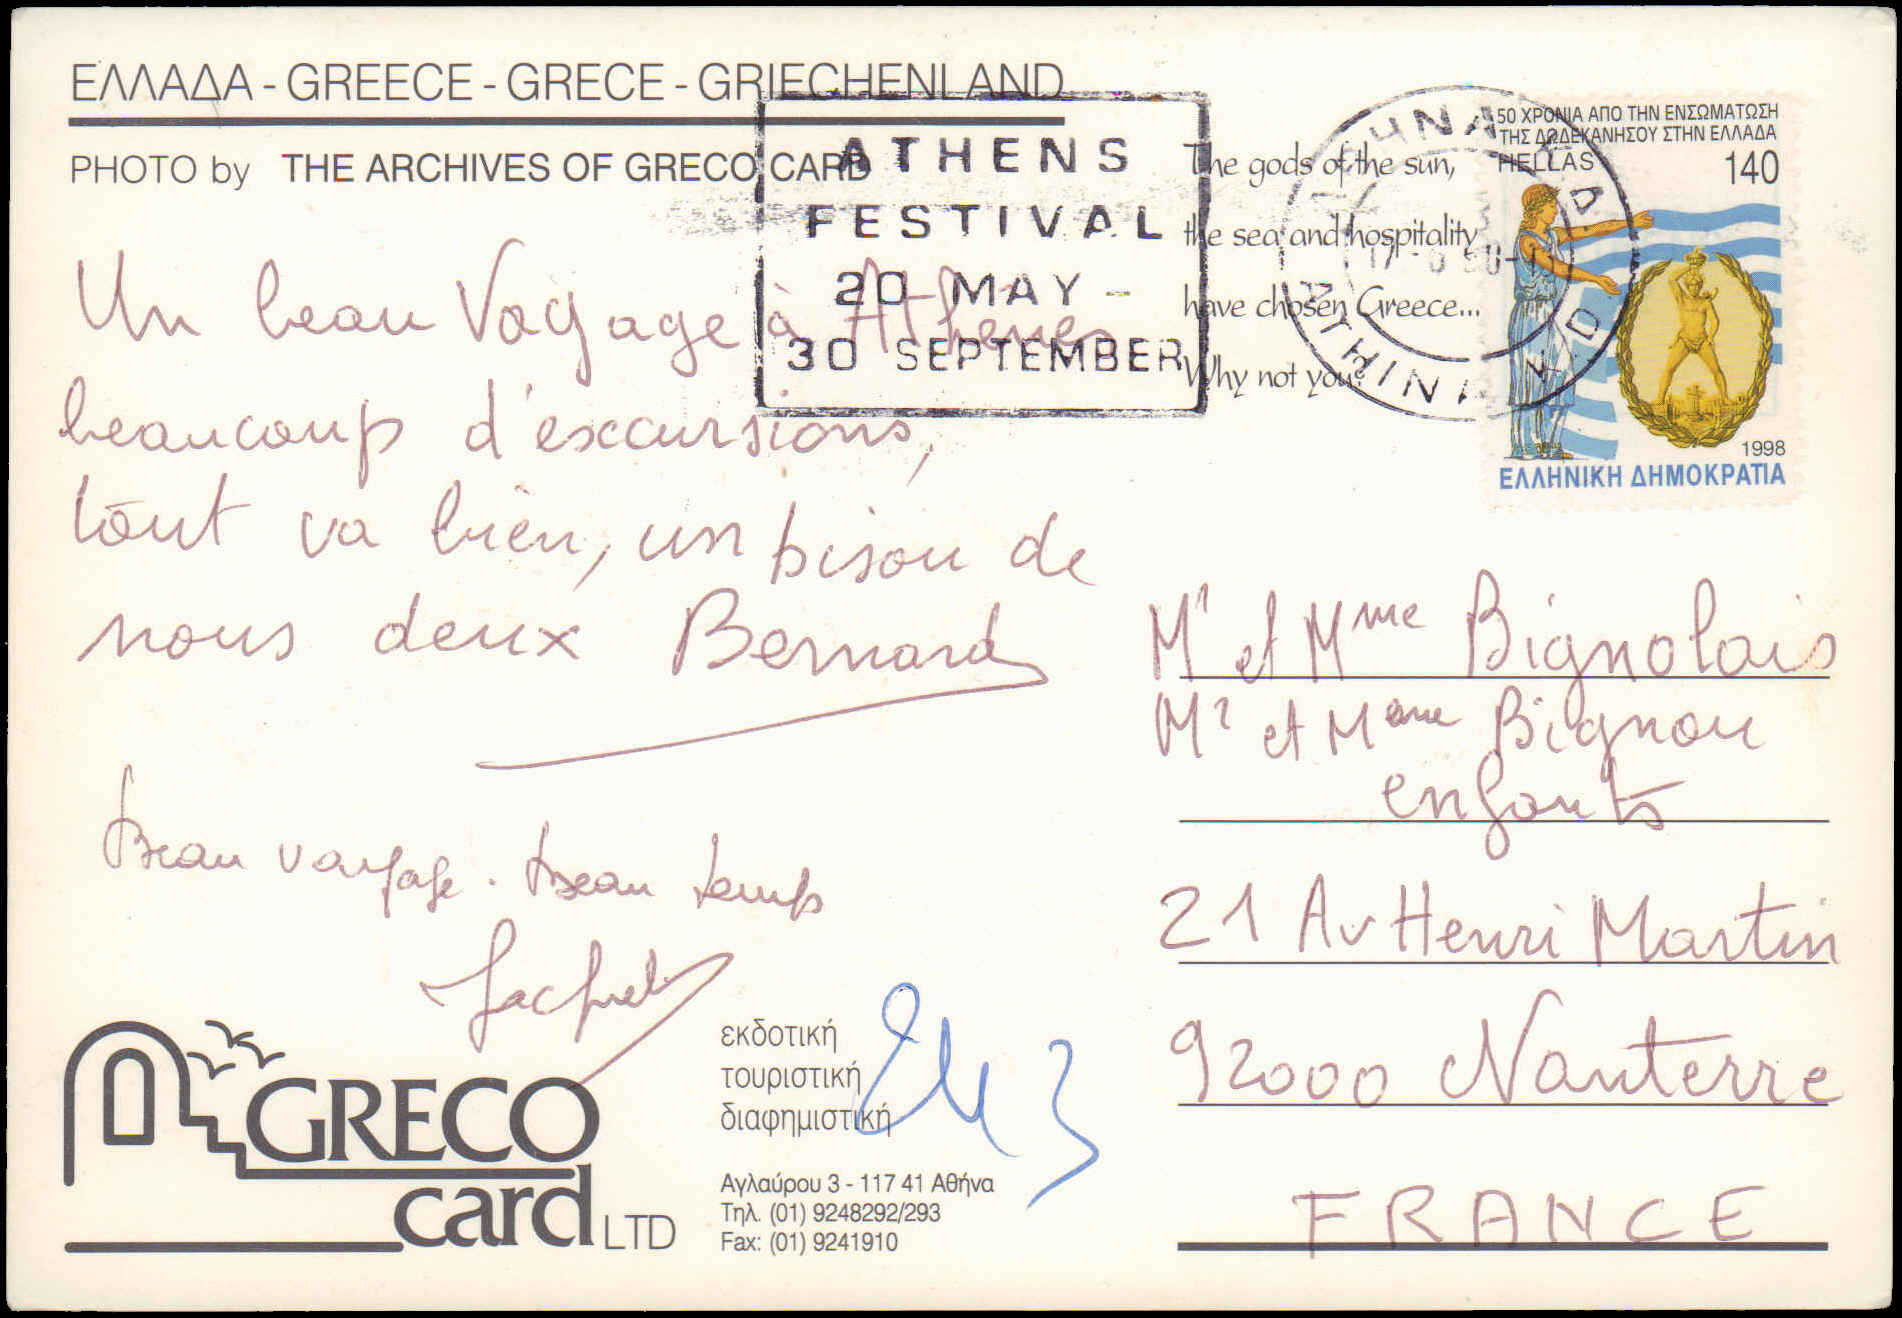 ΕΛΛΑΔΑ - GREECE - GRECE - GRIECHENLAND
PHOTO by THE ARCHIVES OF GRECO CARD
ATHENS
FESTIVAL
20 MAY -
30 SEPTEMBER
The gods of the sun,
the sea and hospitality
have chosen Greece...
Why not you?
50 ΧΡΟΝΙΑ ΑΠΟ ΤΗΝ ΕΝΣΩΜΑΤΩΣΗ
ΤΗΣ ΔΩΔΕΚΑΝΗΣΟΥ ΣΤΗΝ ΕΛΛΑΔΑ
HELLAS 140
1998
ΕΛΛΗΝΙΚΗ ΔΗΜΟΚΡΑΤΙΑ
Un beau Voyage à Athenes
beaucoup d'excursions,
tout va bien, un bisou de
nous deux Bernard
Beau voyage. Beau temps
Mr et Mme Bignolais
Mr et Mme Bignon
enfants
21 Av Henri Martin
92000 Nanterre
FRANCE
GRECO
card LTD
εκδοτική
τουριστική
διαφημιστική
Αγλαύρου 3 - 117 41 Αθήνα
Τηλ. (01) 9248292/293
Fax: (01) 9241910